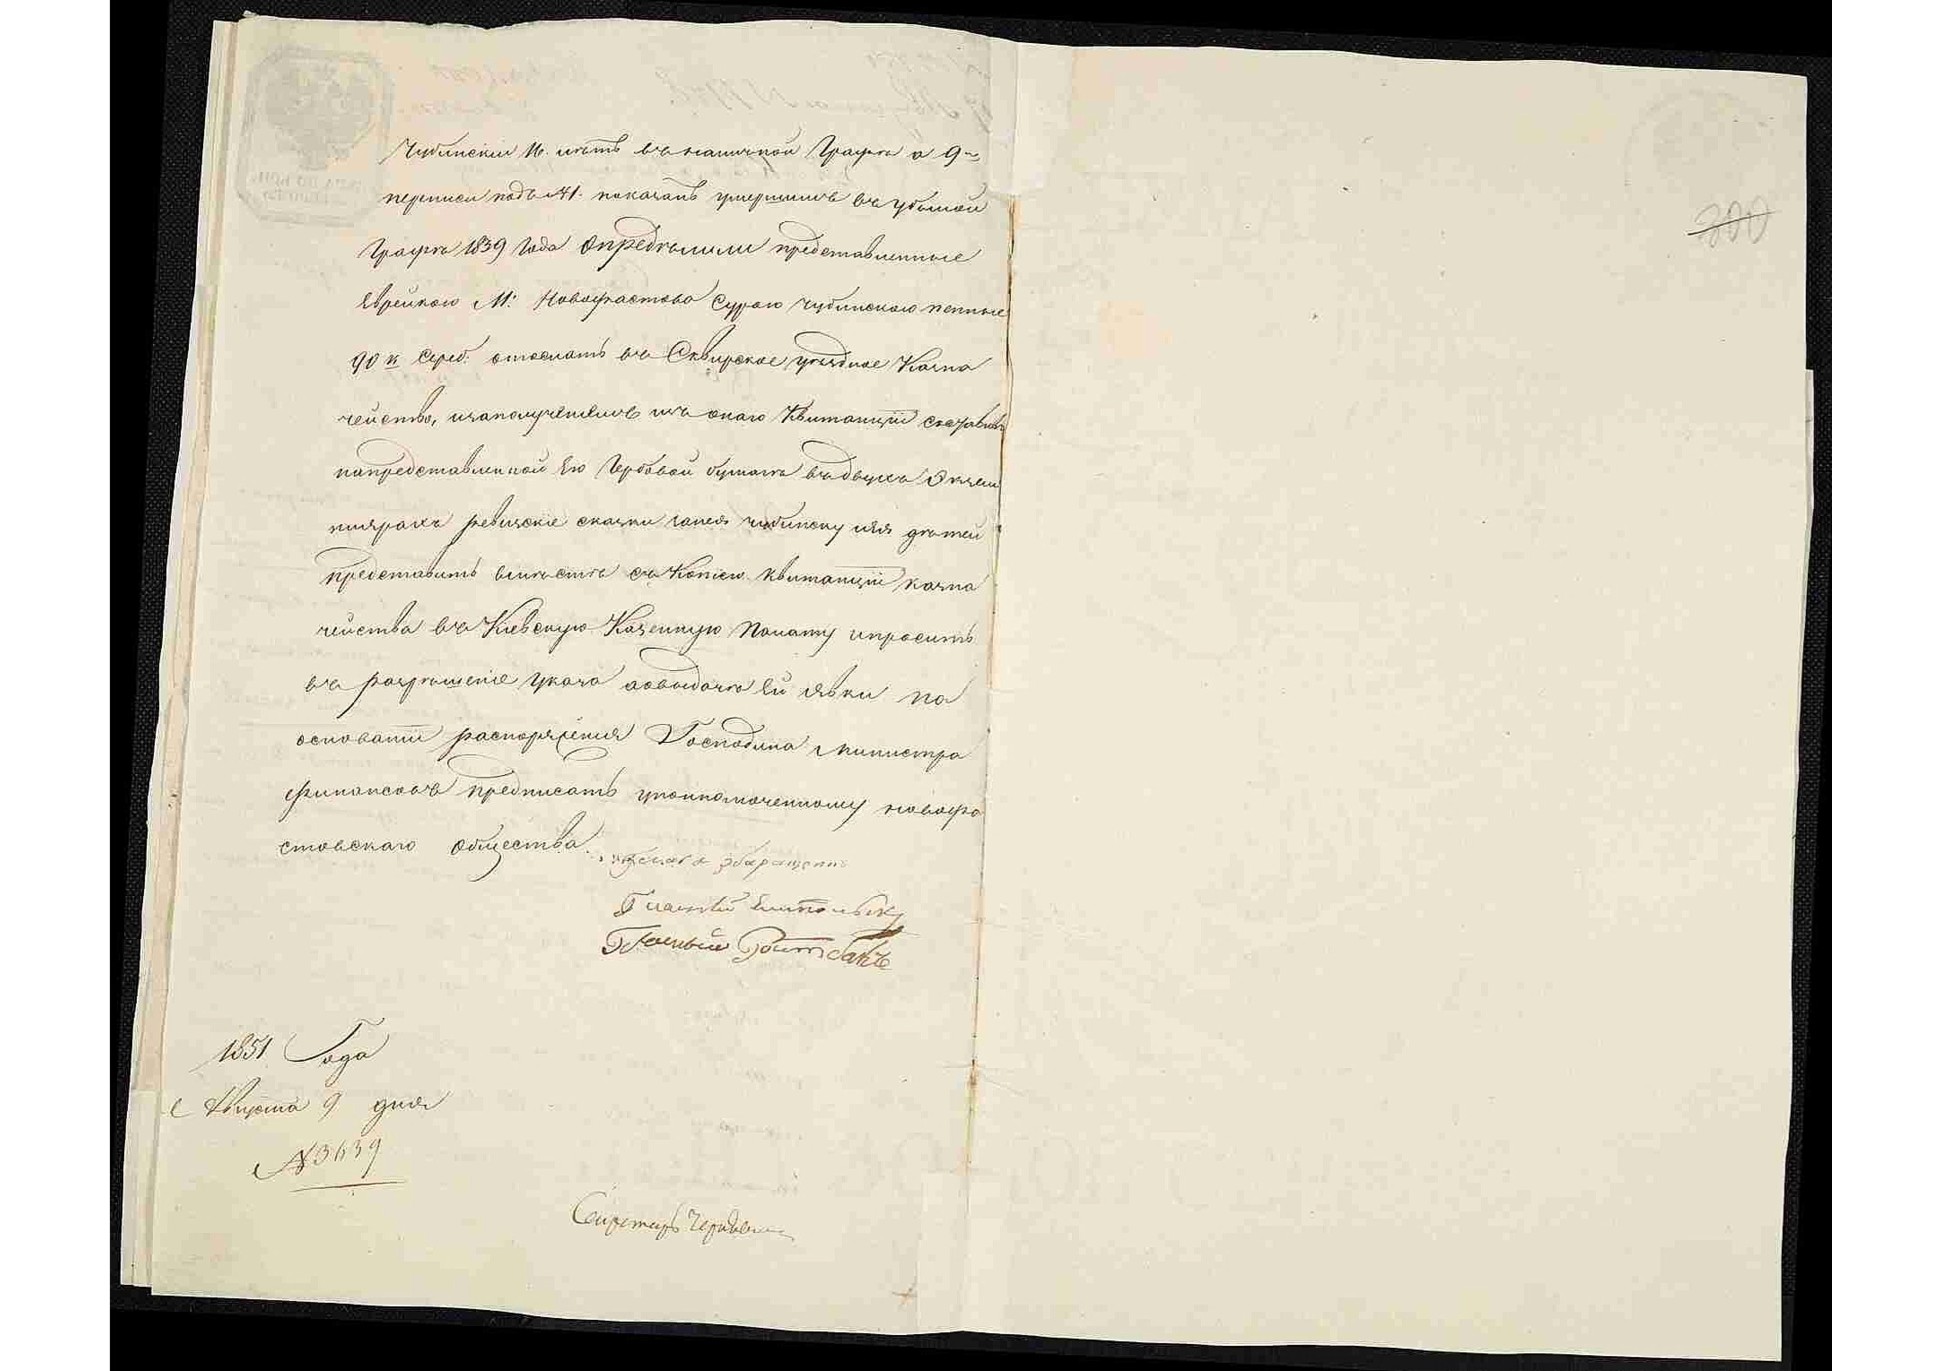 Чубинскій 16. лѣтъ въ наличной Графѣ а 9й
переписи подъ №1. показанъ умершимъ въ убылой
Графѣ 1839 Года Опредѣлили представленные
Еврейкою М: Новофастова Сурою Чубинскою пенные
90 к сереб: отослать въ Сквирское уѣздное Казна
чейство, и заполученіемъ изъ онаго Квитанціи составивъ
на представленной Ею Гербовой бумагѣ въ двухъ Экзем
плярахъ ревизскіе сказки
представить вмѣстѣ съ Копіею Квитанціи казна
чейства въ Кіевскую Казенную Палату и просить
въ разрѣшеніе указа о выдачѣ Ей явки на
основаніи распоряженія Господина Министра
финансовъ предписать уполномоченному новофа
стовскаго Общества.
Гласный
Гласный
1851 Года
Августа 9 дня
№3639
Секретарь
200